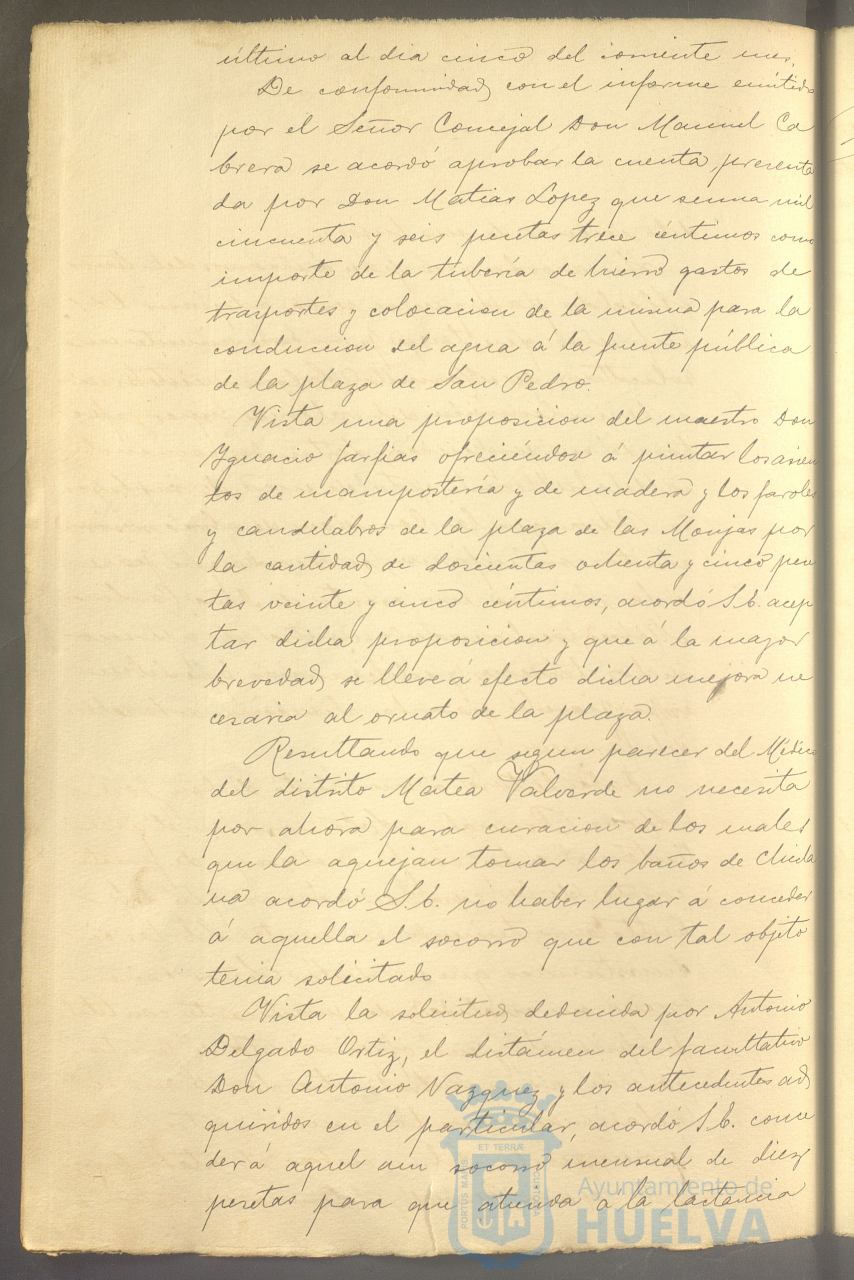 último al dia cinco del corriente mes.
De conformidad con el informe emitido
por el Señor Concejal Don Manuel Ca
brera se acordó aprobar la cuenta presenta
da por Don Matias Lopez que suma mil
cincuenta y seis pesetas trece céntimos como
importe de la tubería de hierro gastos de
trasportes y colocacion de la misma para la
conduccion del agua á la fuente pública
de la plaza de San Pedro.
Vista una proposicion del maestro Don
Ygnacio farfias ofreciéndose á pintar los asien
tos de mampostería y de madera y los faroles
y candelabros de la plaza de las Monjas por
la cantidad de doscientas ochenta y cinco pese
tas veinte y cinco céntimos, acordó S.E. acep
tar dicha proposicion y que á la mayor
brevedad se lleve á efecto dicha mejora ne
cesaria al ornato de la plaza.
Resultando que segun parecer del Médico
del distrito Matea Valverde no necesita
por ahora para curacion de los males
que la aquejan tomar los baños de Chicla
na acordó S.E. no haber lugar á conceder
á aquella el socorro que con tal objeto
tenia solicitado
Vista la solicitud deducida por Antonio
Delgado Ortiz, el dictámen del facultativo
Don Antonio Vazquez y los antecedentes ad
quiridos en el particular, acordó S.E. conce
der á aquel un socorro mensual de diez
pesetas para que atienda a la lactancia
PORTUS MARIS ET TERRÆ CUSTODIA
Ayuntamiento de
HUELVA